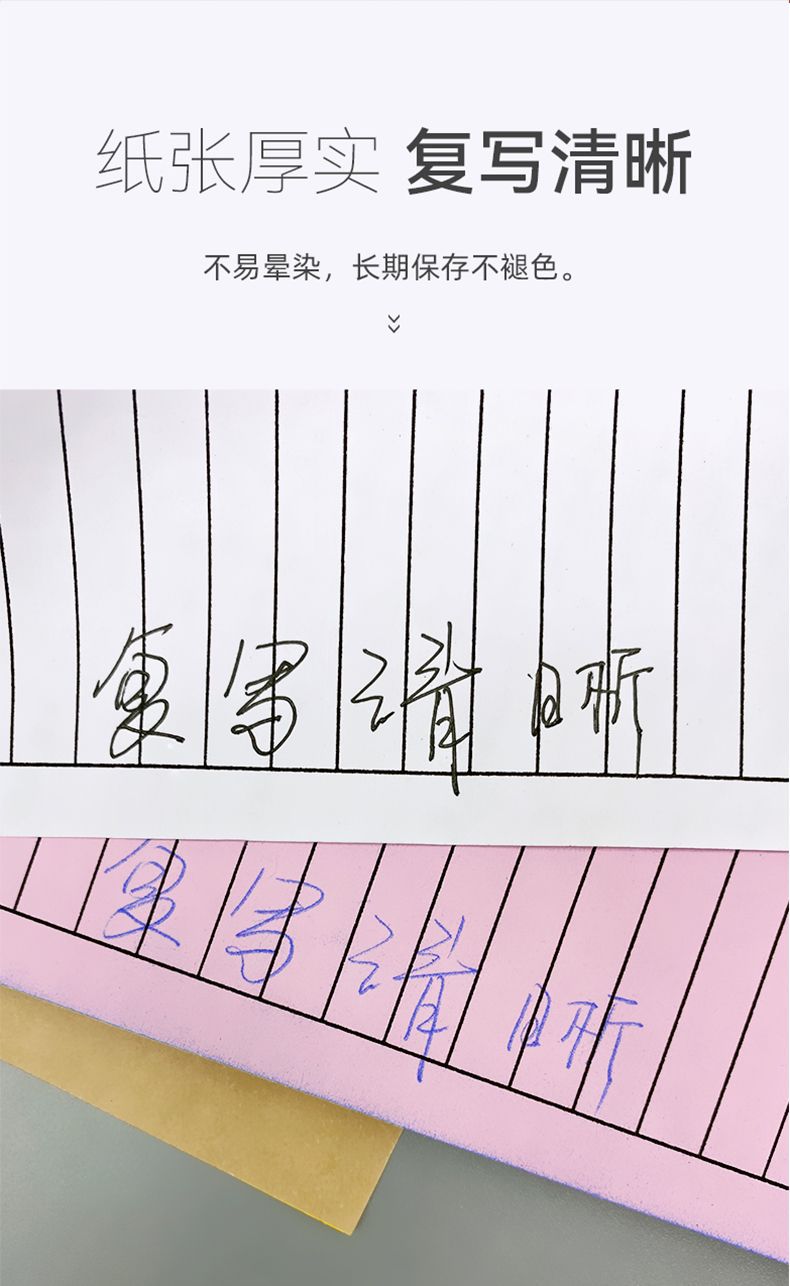 纸张厚实 复写清晰
不易晕染，长期保存不褪色。
复写清晰
复写清晰